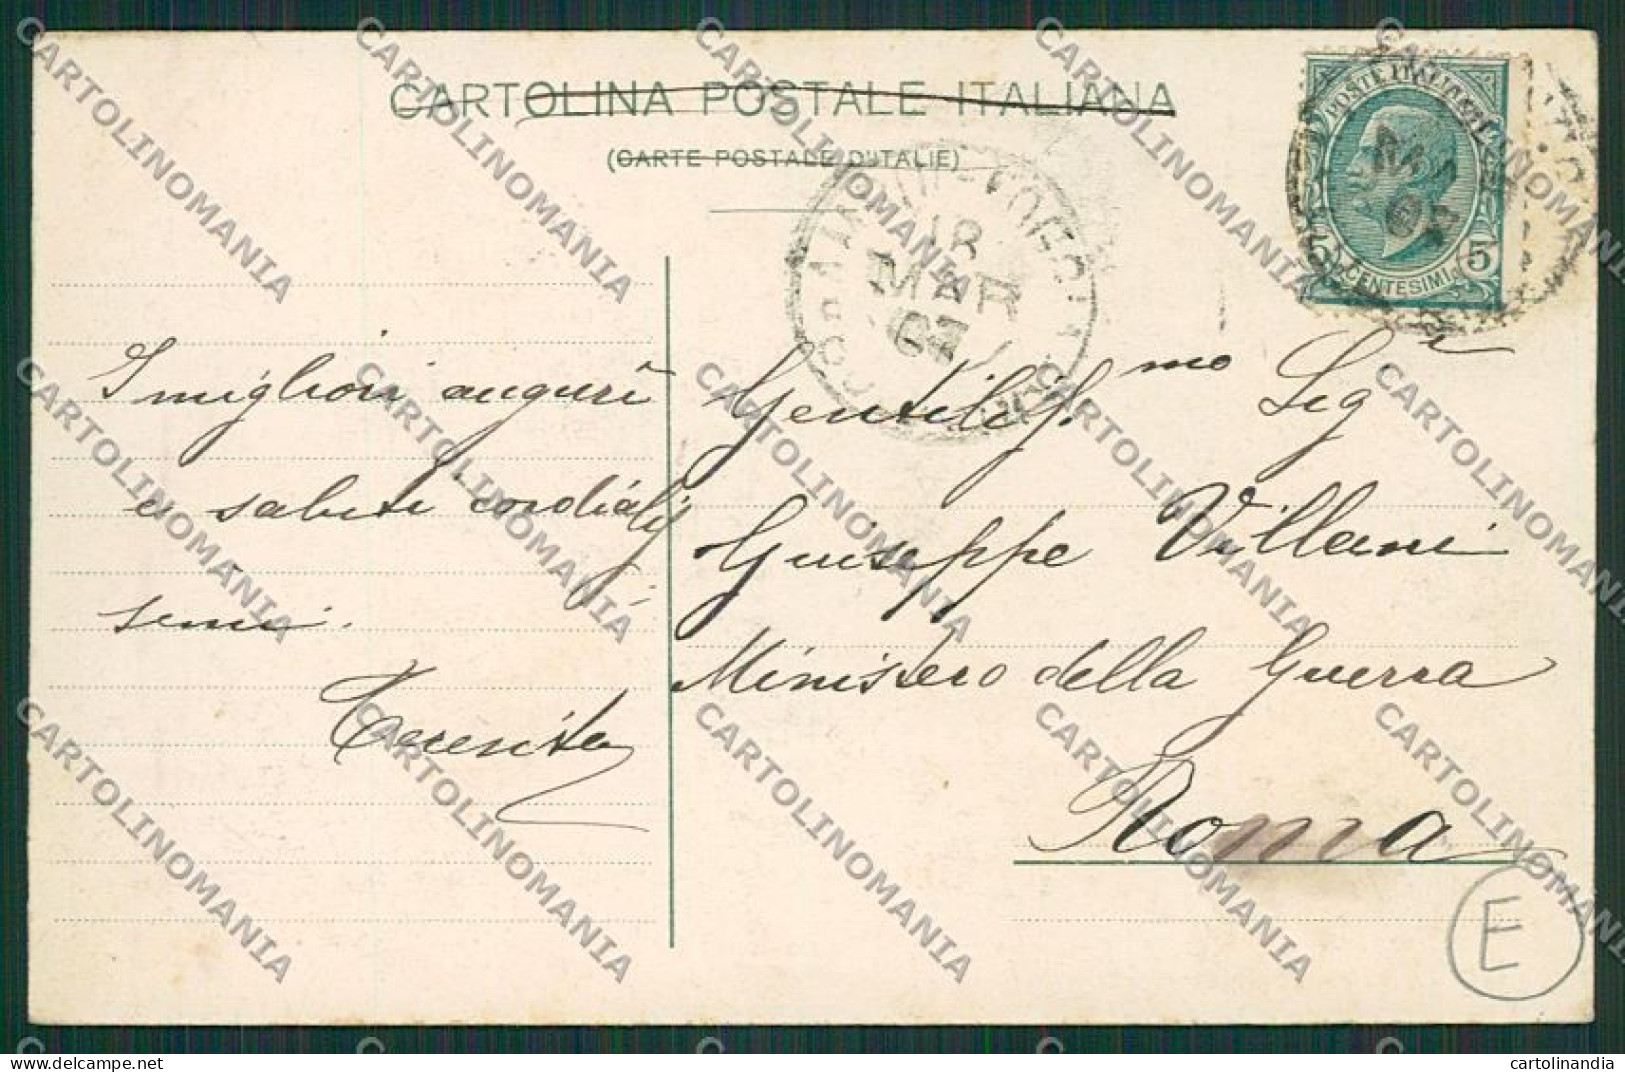 CARTOLINA POSTALE ITALIANA
(CARTE POSTALE D'ITALIE)
POSTE ITALIANE
5 CENTESIMI 5
18
MAR
07
I migliori auguri
e saluti cordialis
simi.
Gentiliss.mo Sig.r
Giuseppe Villani
Ministero della Guerra
Roma
E
CARTOLINOMANIA
delcampe.net
cartolinandia